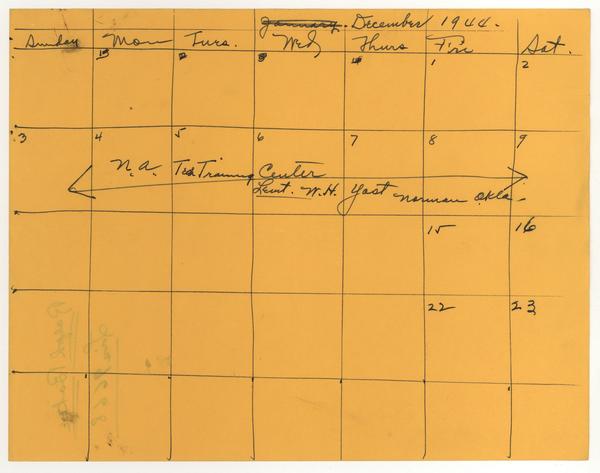 January. December 1944.
Sunday Mon Tues. Wed Thurs Fri Sat.
1 2
3 4 5 6 7 8 9
N.A. Training Center
Lieut. W.H. Yost Norman Okla.
15 16
22 23